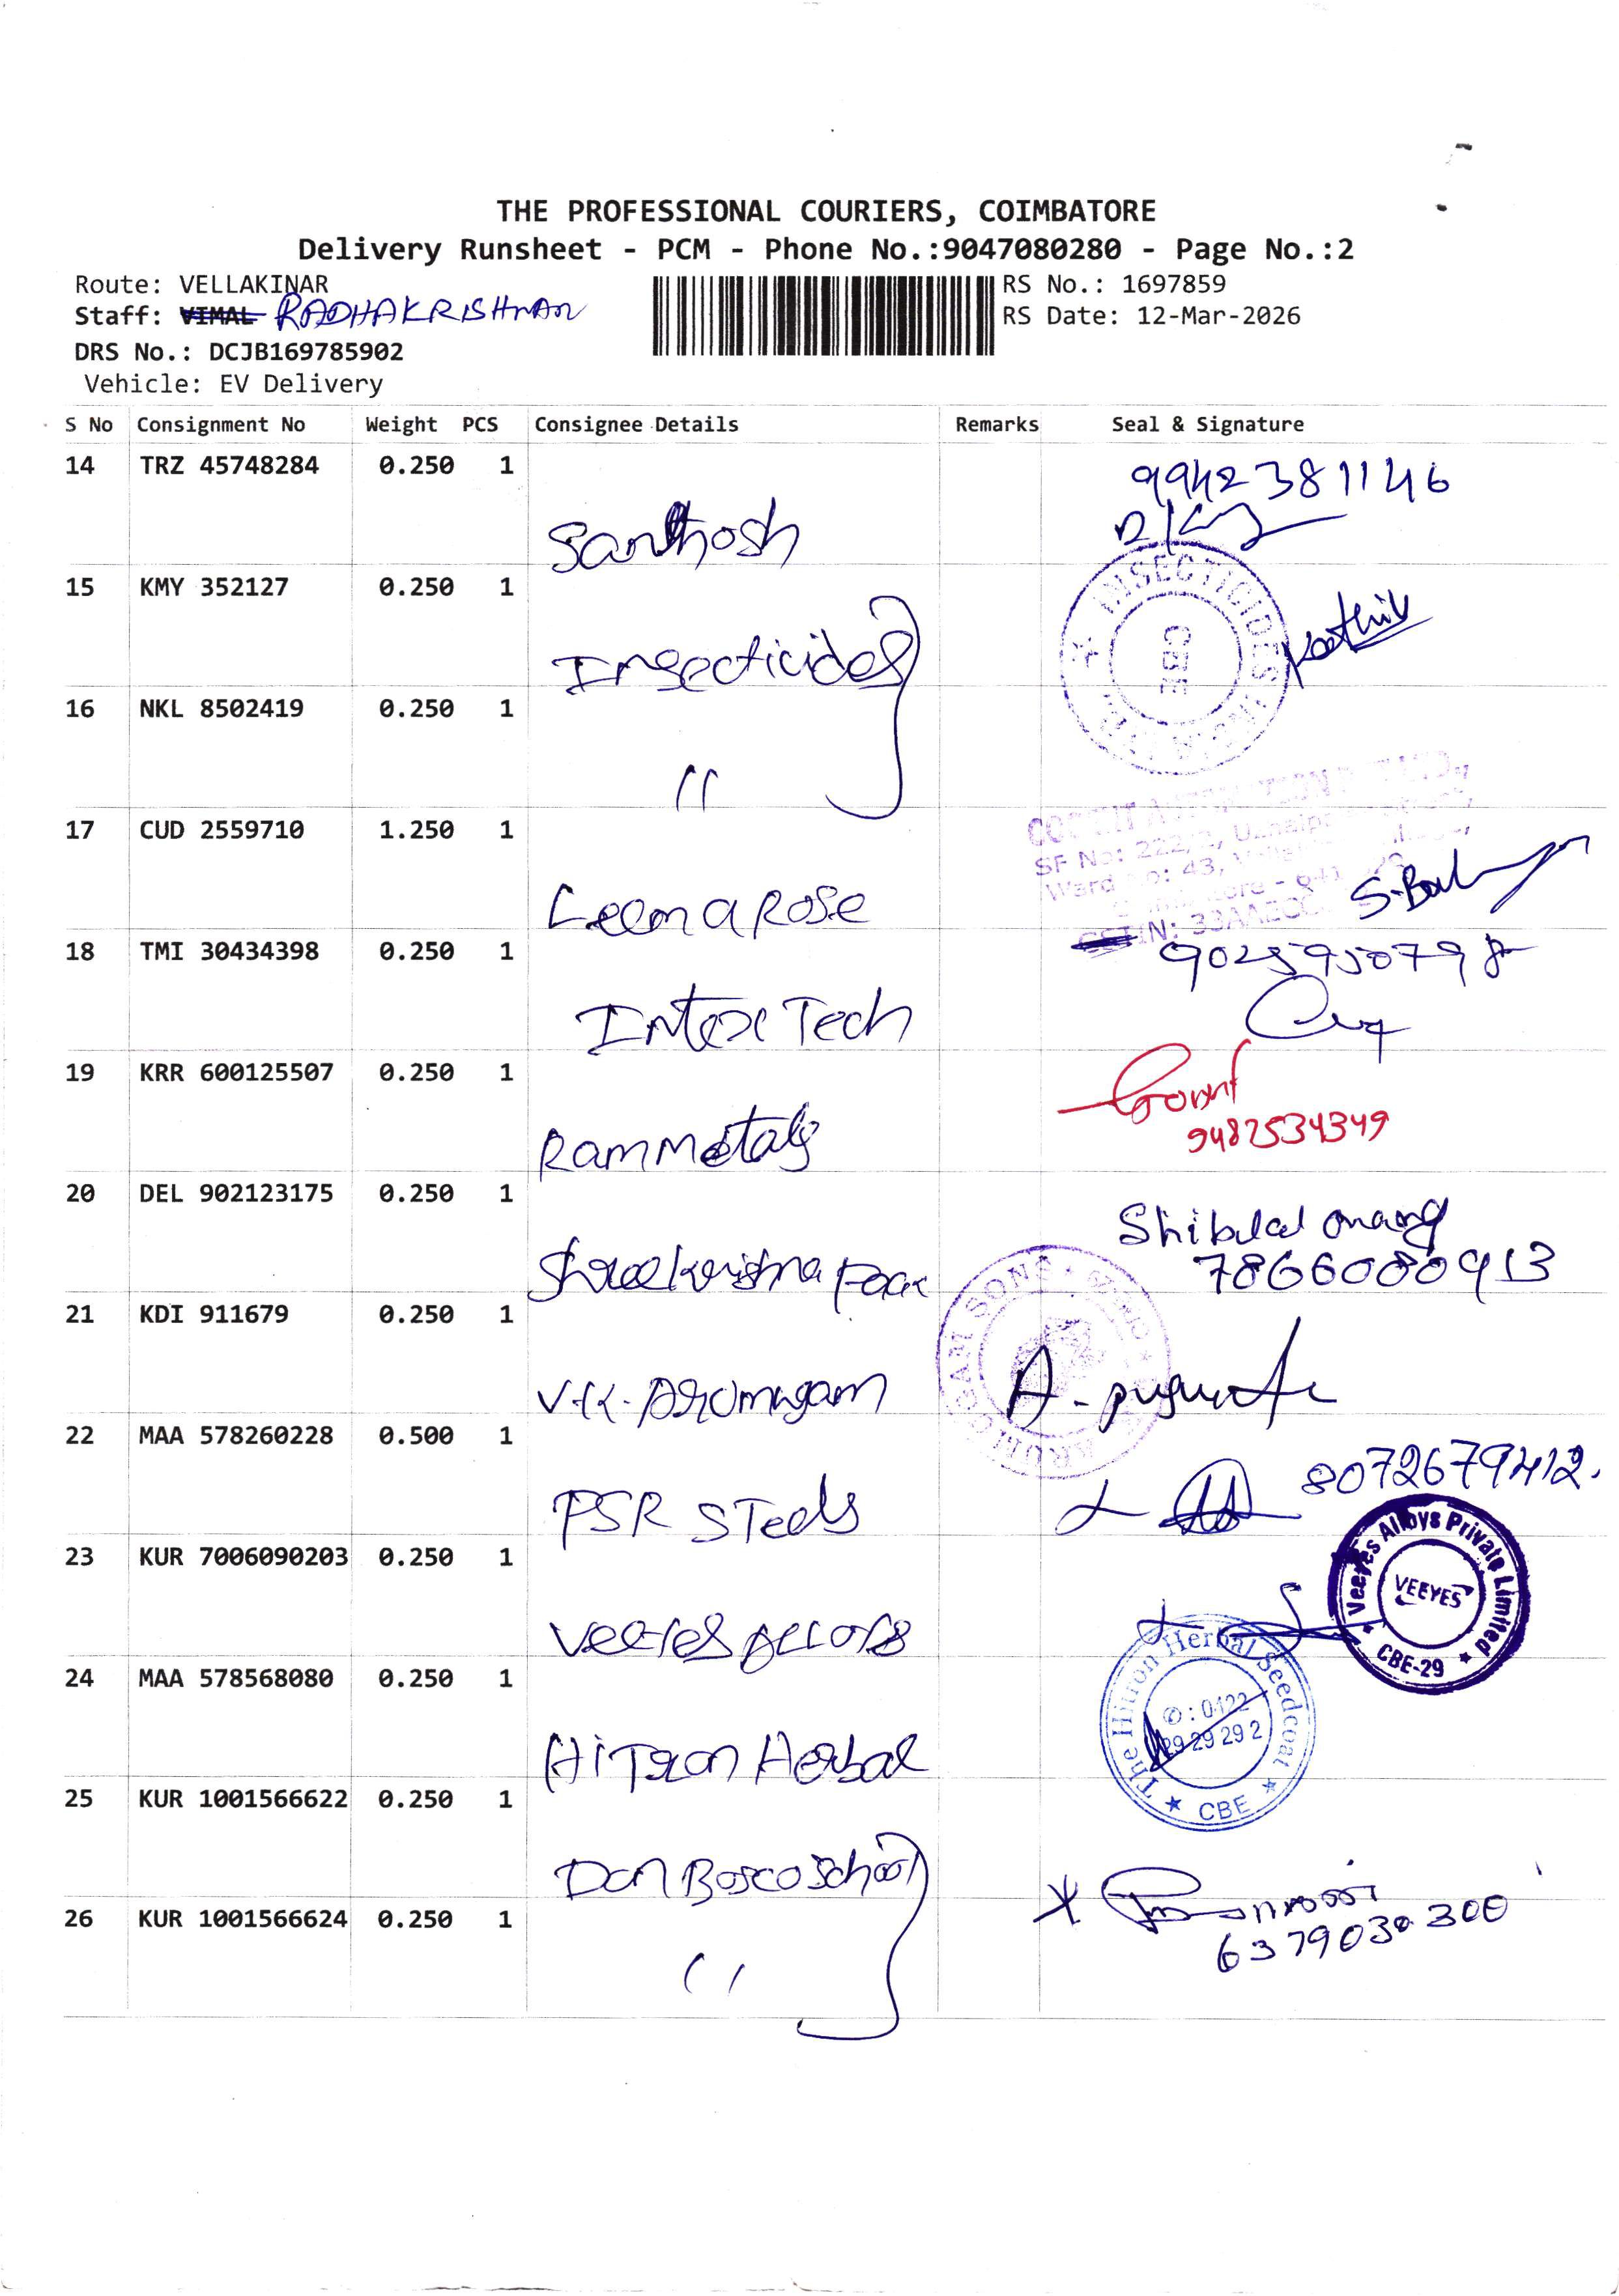 THE PROFESSIONAL COURIERS, COIMBATORE
Delivery Runsheet - PCM - Phone No.:9047080280 - Page No.:2
Route: VELLAKINAR
RS No.: 1697859
Staff: VIMAL RADHAKRISHNAN
RS Date: 12-Mar-2026
DRS No.: DCJB169785902
Vehicle: EV Delivery
S No Consignment No Weight PCS Consignee Details Remarks Seal & Signature
14 TRZ 45748284 0.250 1
9942381146
Santhosh
15 KMY 352127 0.250 1
INSECTICIDES
CBE
Insecticides
16 NKL 8502419 0.250 1
"
17 CUD 2559710 1.250 1
SF No: 222/2,
Ward No: 43,
Leema Rose
18 TMI 30434398 0.250 1
Intex Tech
19 KRR 600125507 0.250 1
9487534349
Ram Metals
20 DEL 902123175 0.250 1
Shreekrishna
7866080913
21 KDI 911679 0.250 1
V.K. Arumugam
SONS
22 MAA 578260228 0.500 1
8072679412.
PSR Steels
23 KUR 7006090203 0.250 1
Veeyes Alloys Private Limited
VEEYES
CBE-29
24 MAA 578568080 0.250 1
The Hitron Herbal Seedcoat
✆: 0422
29 29 29 2
CBE
Hitron Herbal
25 KUR 1001566622 0.250 1
Don Bosco School
26 KUR 1001566624 0.250 1
6379030300
"